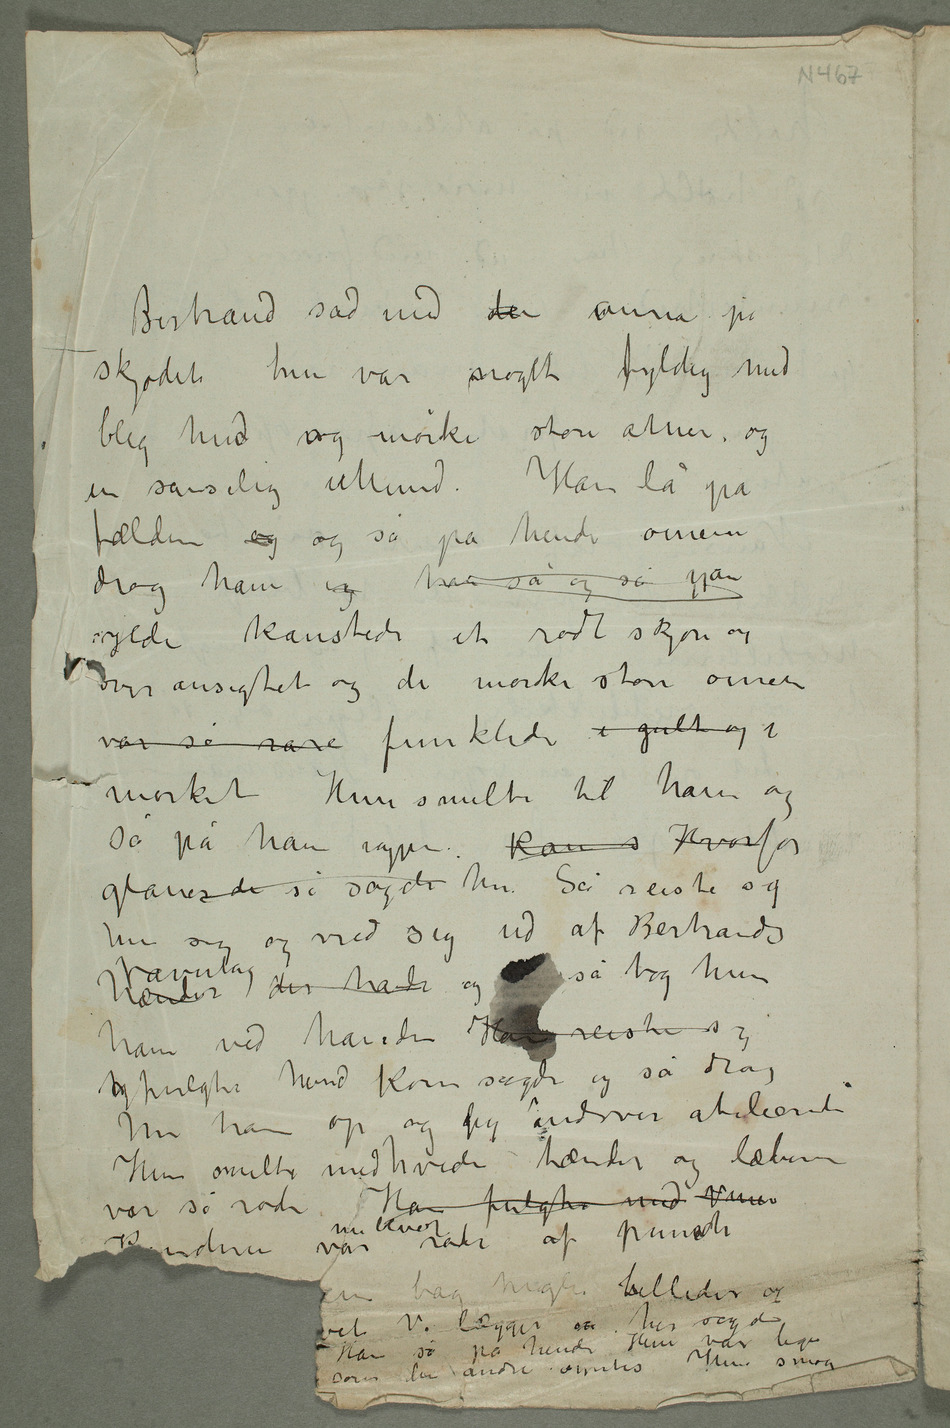 N467
Bertrand sad med den anna på
skjødet hun var noget fyldig med
bleg hud og mörke store øinene, og
en sanselig Mund. Han lå på
fælden og og så på hende øinene
drog ham og han så og så
fylde kanstede et rødt skjær og
over ansigtet og de mørke store øinene
var så rare funklede i gult og i
mørket Hun smilte til ham og
så på ham igjen. Kom s Hvorfor
glaner de så sagde hun. Så reiste sig
hun sig og vred sig ud af Bertrands
favntag
hænder der havde og så tog hun
ham ved hånden Han reiste sig
og fulgte hend Kom sagde og så drog
hun ham op og udover atelieret
Hun smilte med hvide tænder og læberne
var så røde Han fulgte med
Kinderne var røde af punsch
bag nogle billeder og
V. lægger os her sagde
Han så på hende Hun var lige
som den andre Hun smog